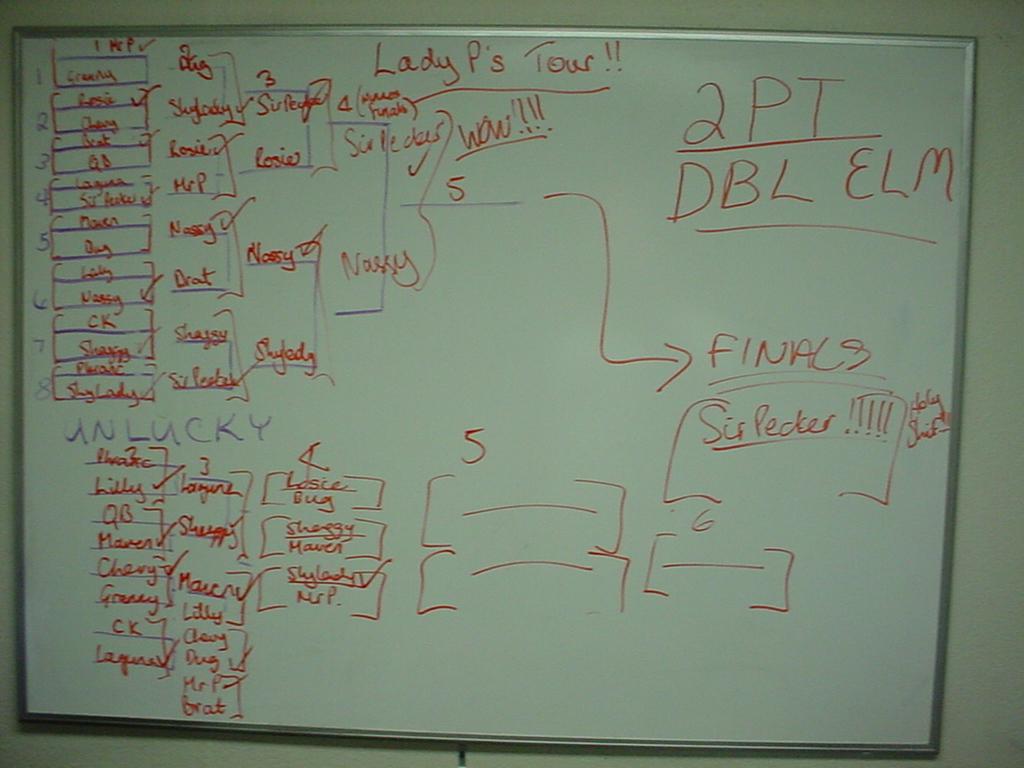 Lady P's Tour!!
2 PT
DBL ELM
1 MrP
1
2 Rosie
Chevy
3 Brat
QB
4 Laguna
Sir Pecker
5 Maven
Bug
6 Lilly
Nassy
7 CK
Shaggy
8 Phrate
ShyLady
Bug
ShyLady
Rosie
MrP
Nassy
Brat
Shaggy
Sir Pecker
3
Sir Pecker
Rosie
Nassy
ShyLady
4
Sir Pecker
Nassy
WOW!!!!
5
FINALS
Sir Pecker!!!!!
Holy
UNLUCKY
2
Lilly
QB
Maven
Chevy
CK
Laguna
3
Laguna
Shaggy
Maven
Lilly
Chevy
Bug
MrP
Brat
4
Rosie
Bug
Shaggy
Maven
ShyLady
MrP.
5
6